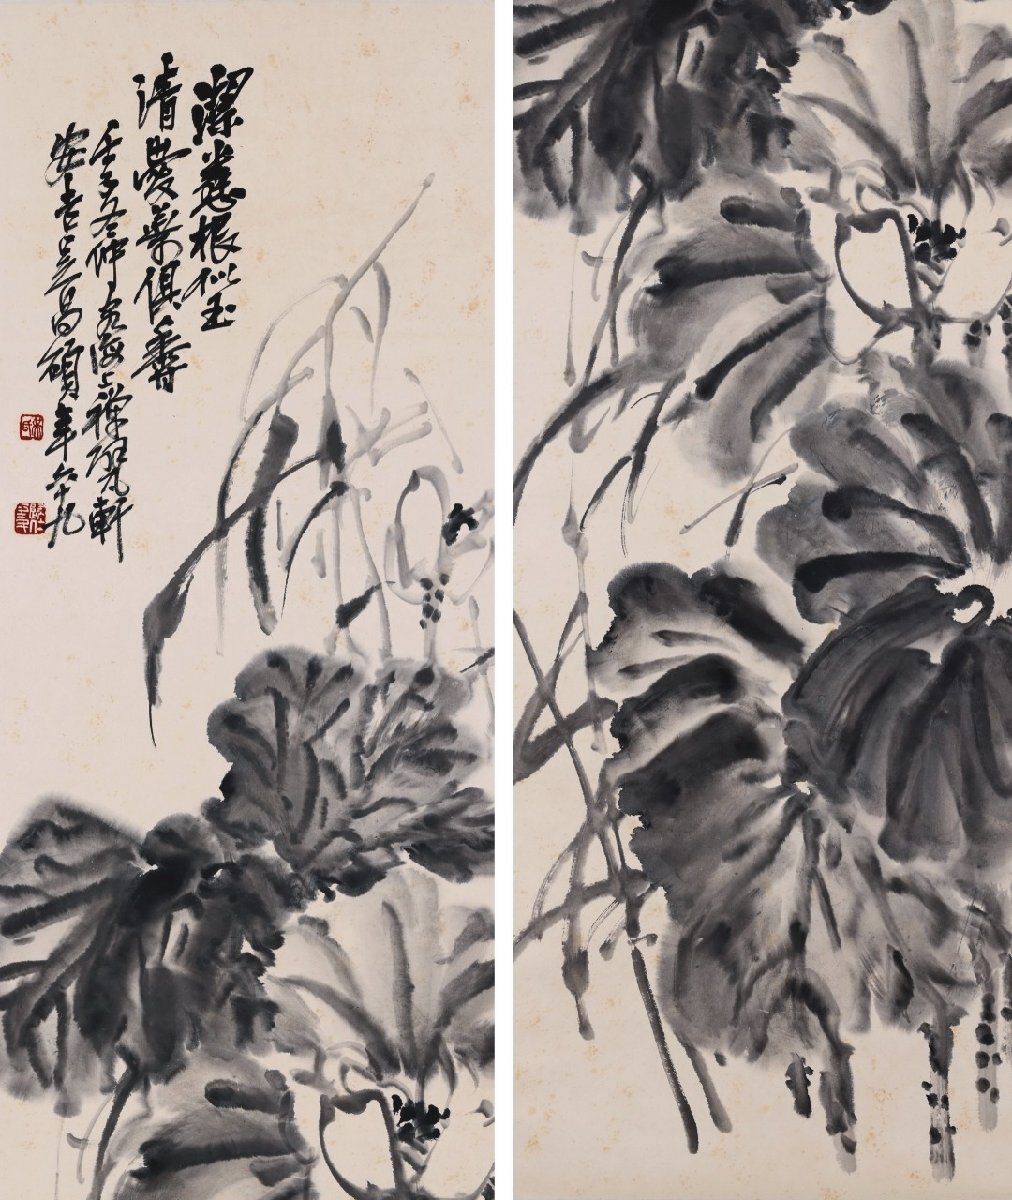 潔羨根似玉
清愛葉俱香
壬子冬仲客海上禪甓軒
安吉吳昌碩年六十九